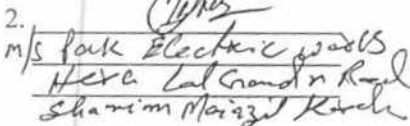 2.
M/s Pak Electric works
Hera Lal Grand n Road
Shamim Manzil Karch